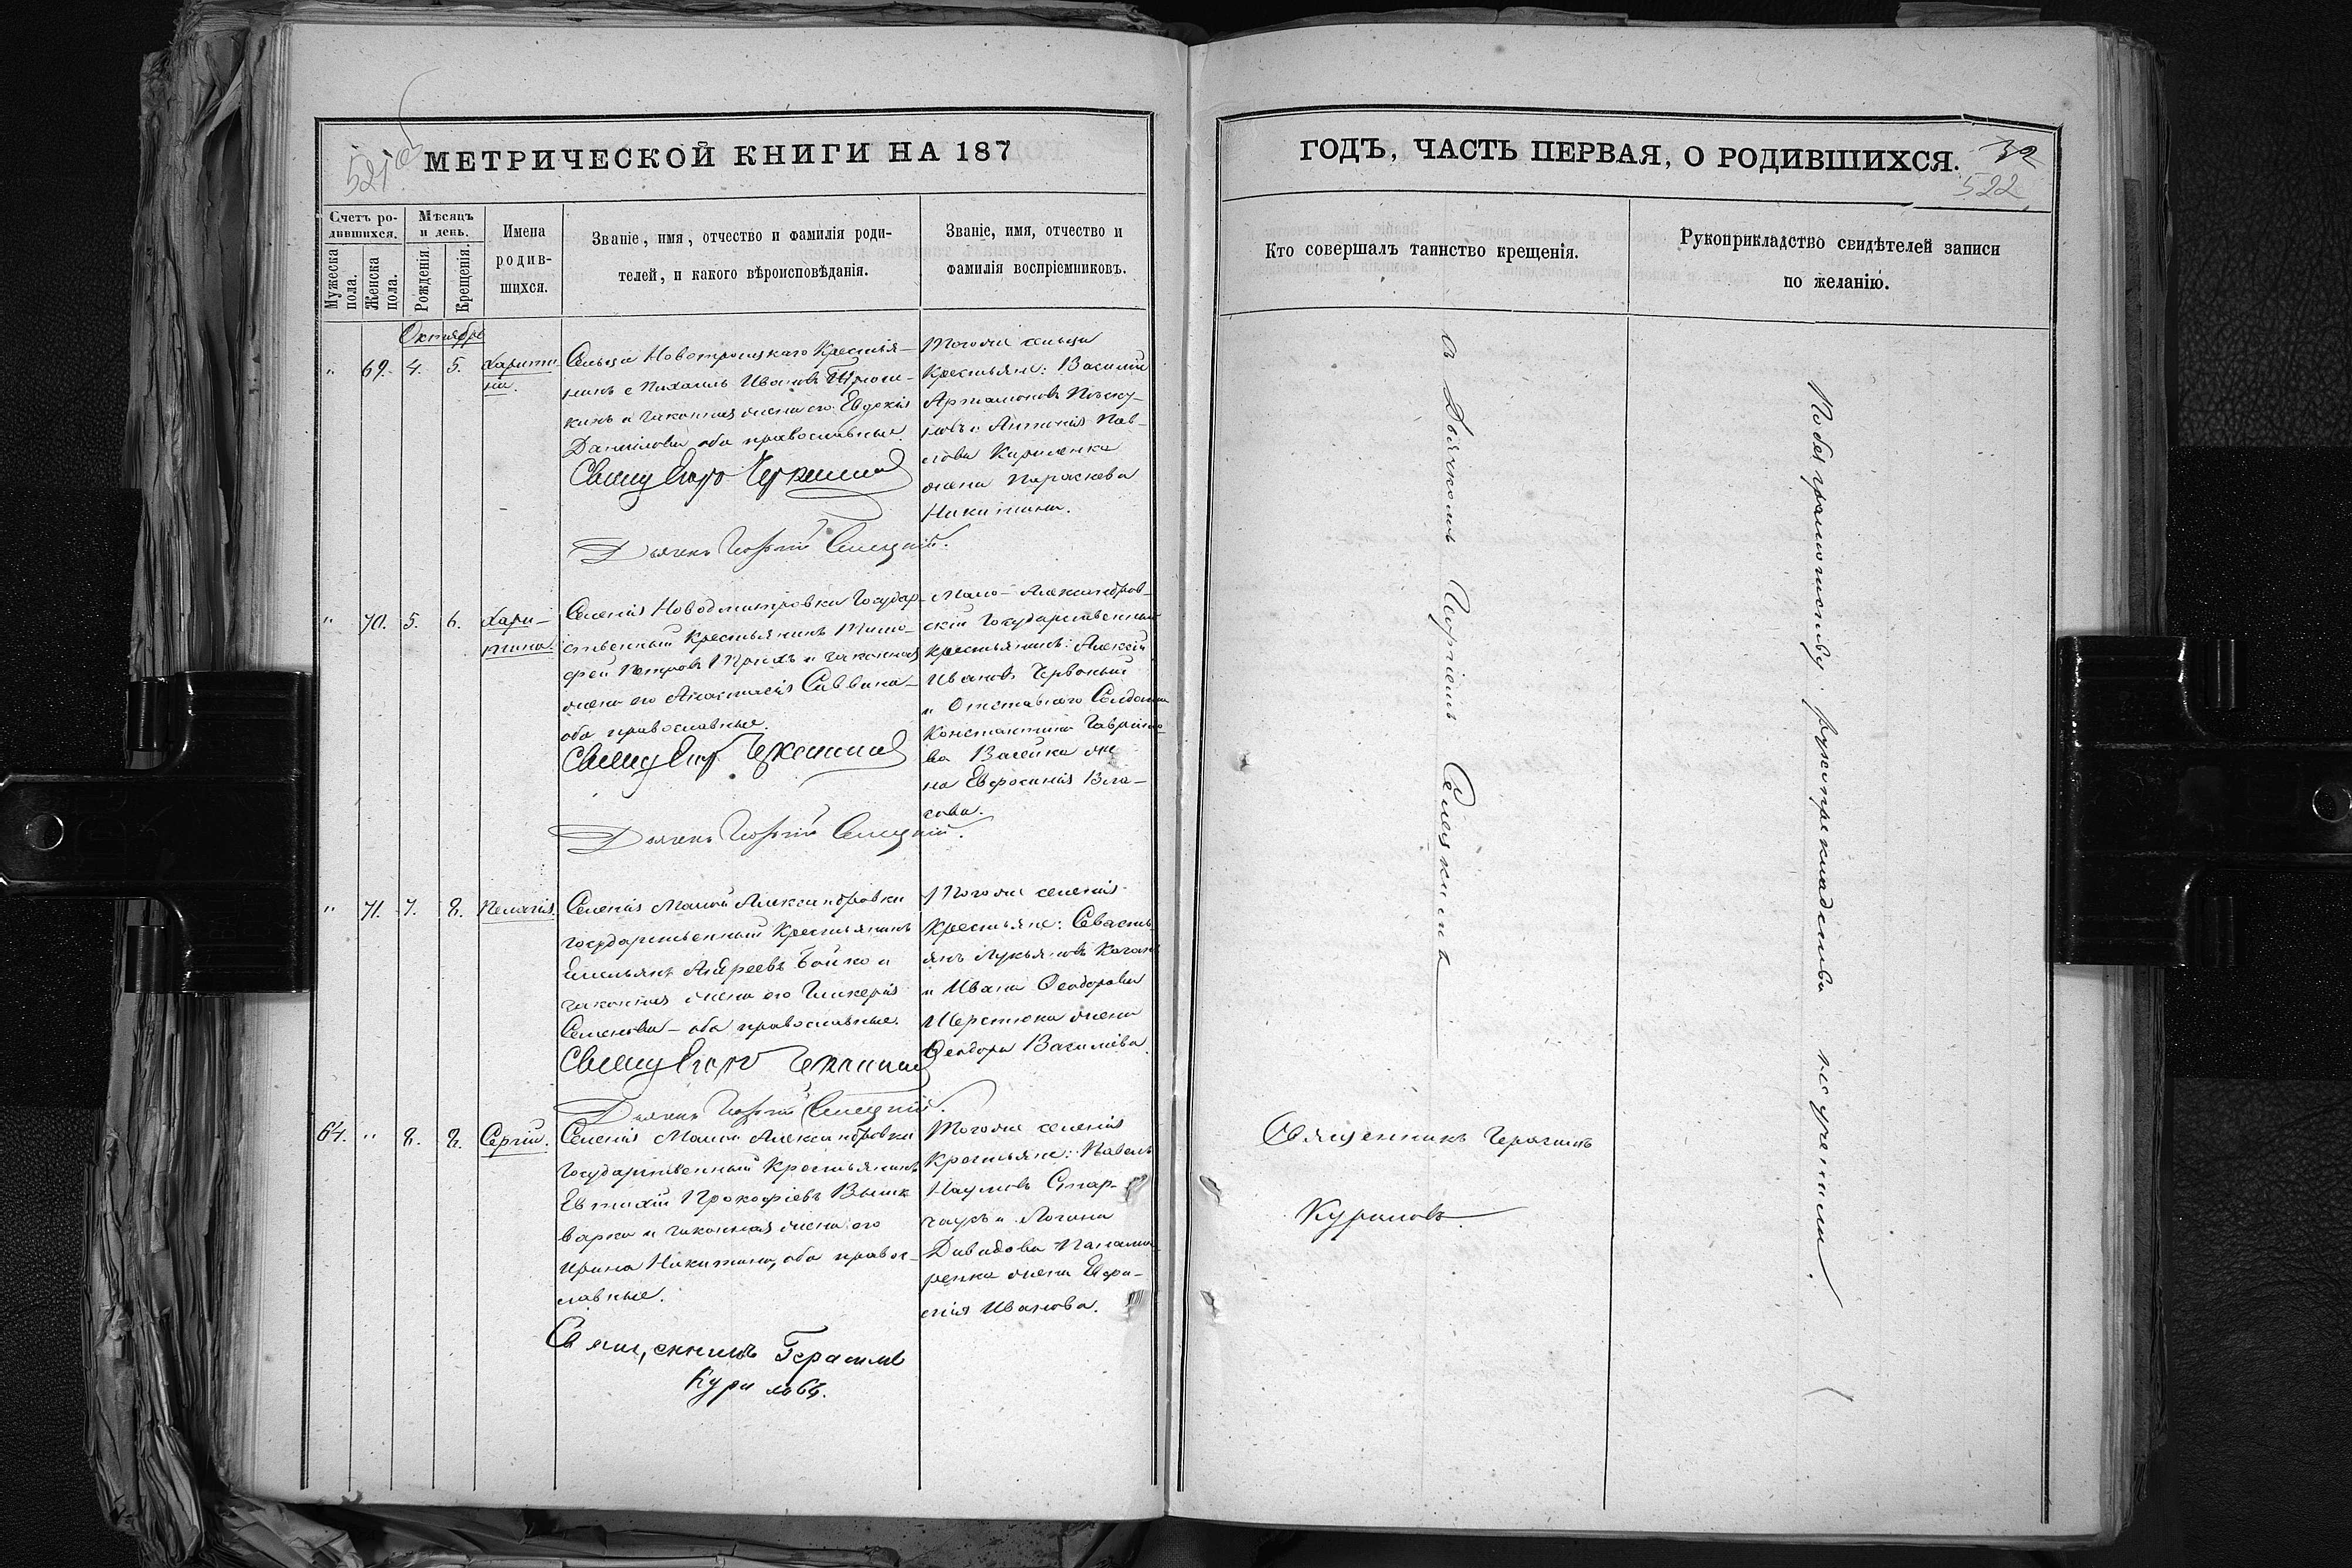 521 об
МЕТРИЧЕСКОЙ КНИГИ НА 187
Счетъ ро-
дившихся.
Мѣсяцъ
и день.
Мужеска
пола.
Женска
пола.
Рожденія.
Крещенія.
Имена
родив-
шихся.
Званіе, имя, отчество и фамилія роди-
телей, и какого вѣроисповѣданія.
Званіе, имя, отчество и
фамилія воспріемниковъ.
Октябрь
" 69. 4. 5.
Харити-
на.
Сельца Новотроицкаго Крестья-
нинъ Михаилъ Ивановъ
и законная жена его Евдокія
Данилова, оба православные.
Свящ
Дьячекъ Георгій
Тогоже сельца
Крестьяне: Василій
Артамоновъ
и Антонія Пав-
лова Кириленка
жена Параскева
Никитина.
" 70. 5. 6.
Хари-
тина.
Селенія Новодмитровки Государ-
ственный Крестьянинъ Тимо-
фей Петровъ и законная
жена его Анастасія Саввина
оба православные.
Свящ
Дьячекъ Георгій
Мало-Александров-
скій Государственный
крестьянинъ: Алексѣй
Ивановъ Червоный
и Отставного Солдата
Константина Гаврило-
ва же-
на Евфросинія Вла-
сова.
" 71. 7. 8.
Пелагія.
Селенія Малой Александровки
государственный Крестьянинъ
Емельянъ Андреевъ Бойко и
законная жена его Гликерія
Семенова - оба православные.
Свящ
Дьячекъ Георгій
Тогоже селенія
Крестьяне: Севасть-
янъ Лукьяновъ
и Ивана Феодорова
Шерстюка жена
Феодора Василіева.
64. " 8. 8.
Сергій.
Селенія Малой Александровки
Государственный Крестьянинъ
Евтихій Прокофіевъ
и законная жена его
Ирина Никитина, оба правос-
лавные.
Священникъ Герасимъ
Куриловъ.
Тогоже селенія
Крестьяне: Павелъ
Наумовъ Стар-
и Логина
Давидова Панама-
ренка жена Евфро-
синія Иванова.
ГОДЪ, ЧАСТЬ ПЕРВАЯ, О РОДИВШИХСЯ.
32
522
Кто совершалъ таинство крещенія.
Рукоприкладство свидѣтелей записи
по желанію.
съ Дьячкомъ Георгіемъ
По безграмотству рукоприкладства не учинили.
Священникъ Герасимъ
Куриловъ.